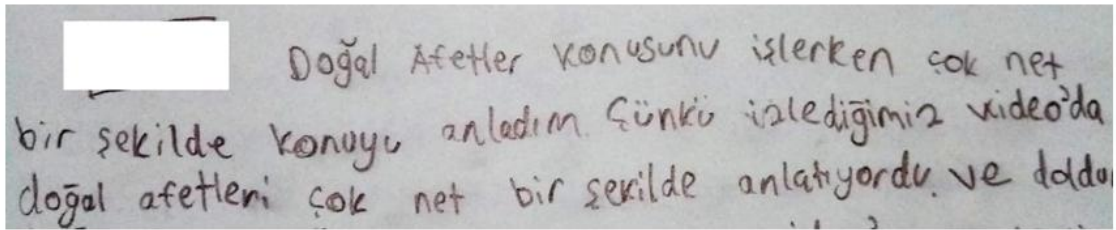 Doğal Afetler konusunu işlerken çok net
bir şekilde konuyu anladım. Çünkü izlediğimiz video'da
doğal afetleri çok net bir şekilde anlatıyordu. ve doldu